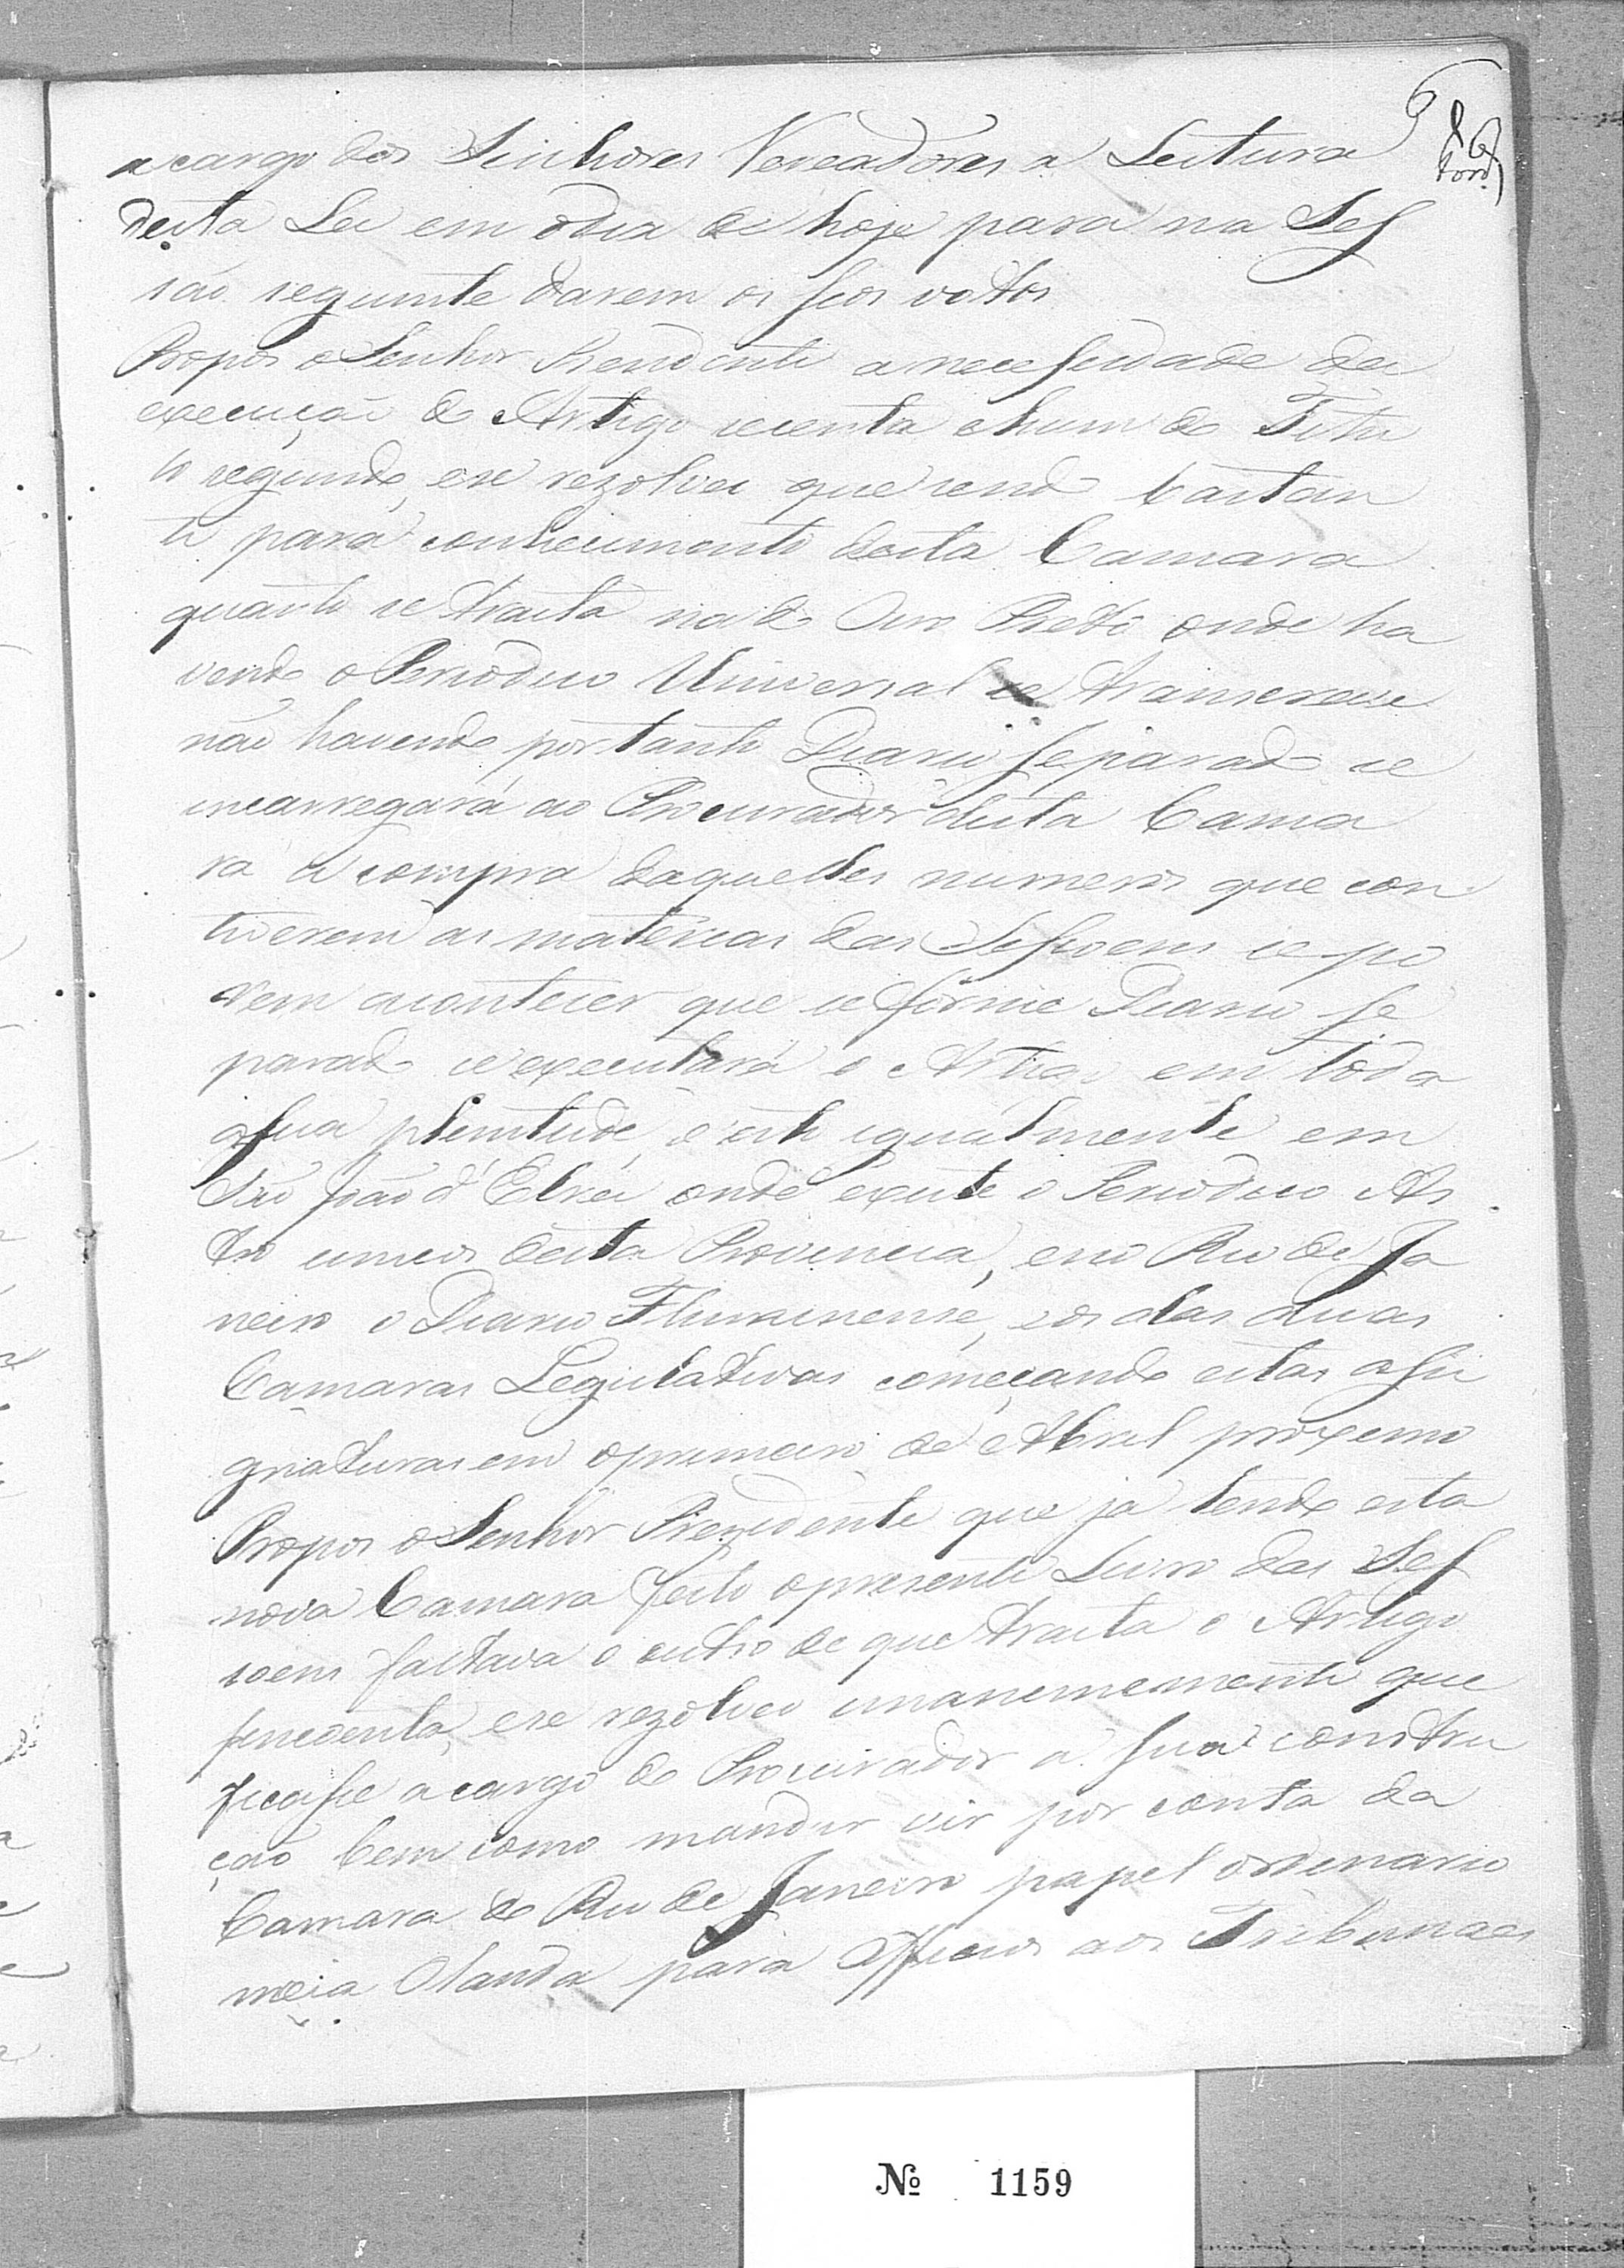 6
acargo dos Senhores Vereadores a Leitura
desta Lei em odia de hoje para na Ses
são seguinte darem os seos votos
Propos o Senhor Prezidente a necessidade da
execução do Artigo secenta ehum do Titu
lo segundo, ese rezolveo que sendo bastan
te para conhecimento desta Camara
quanto se tracta na do Ouro Preto onde ha
vendo o Periodico Universal se transcreve
não havendo portanto Diario separado se
encarregará ao Procurador desta Cama
ra a compra daquelles numeros que con
tiverem as materias das Sessoens se po
rem acontecer que se forme Diario se
parado se executará o Artigo em toda
asua plenitude, e isto igualmente em
São João d'ElRei onde existe o Periodico As
tro unicos desta Provincia, eno Rio de Ja
neiro o Diario Fluminense, eos das duas
Camaras Legislativas começando estas assi
gnaturas em oprimeiro de Abril proximo
Propos o Senhor Prezidente que ja tendo esta
nova Camara feito opresente Livro das Ses
soens faltava o outro de que tracta o Artigo
sincoenta, ese rezolveo unanimemente que
ficasse acargo do Procurador a sua constru
ção bem como mandar vir por conta da
Camara do Rio de Janeiro papel ordenario
meia Olanda para Officios aos Tribunaes
Nº 1159